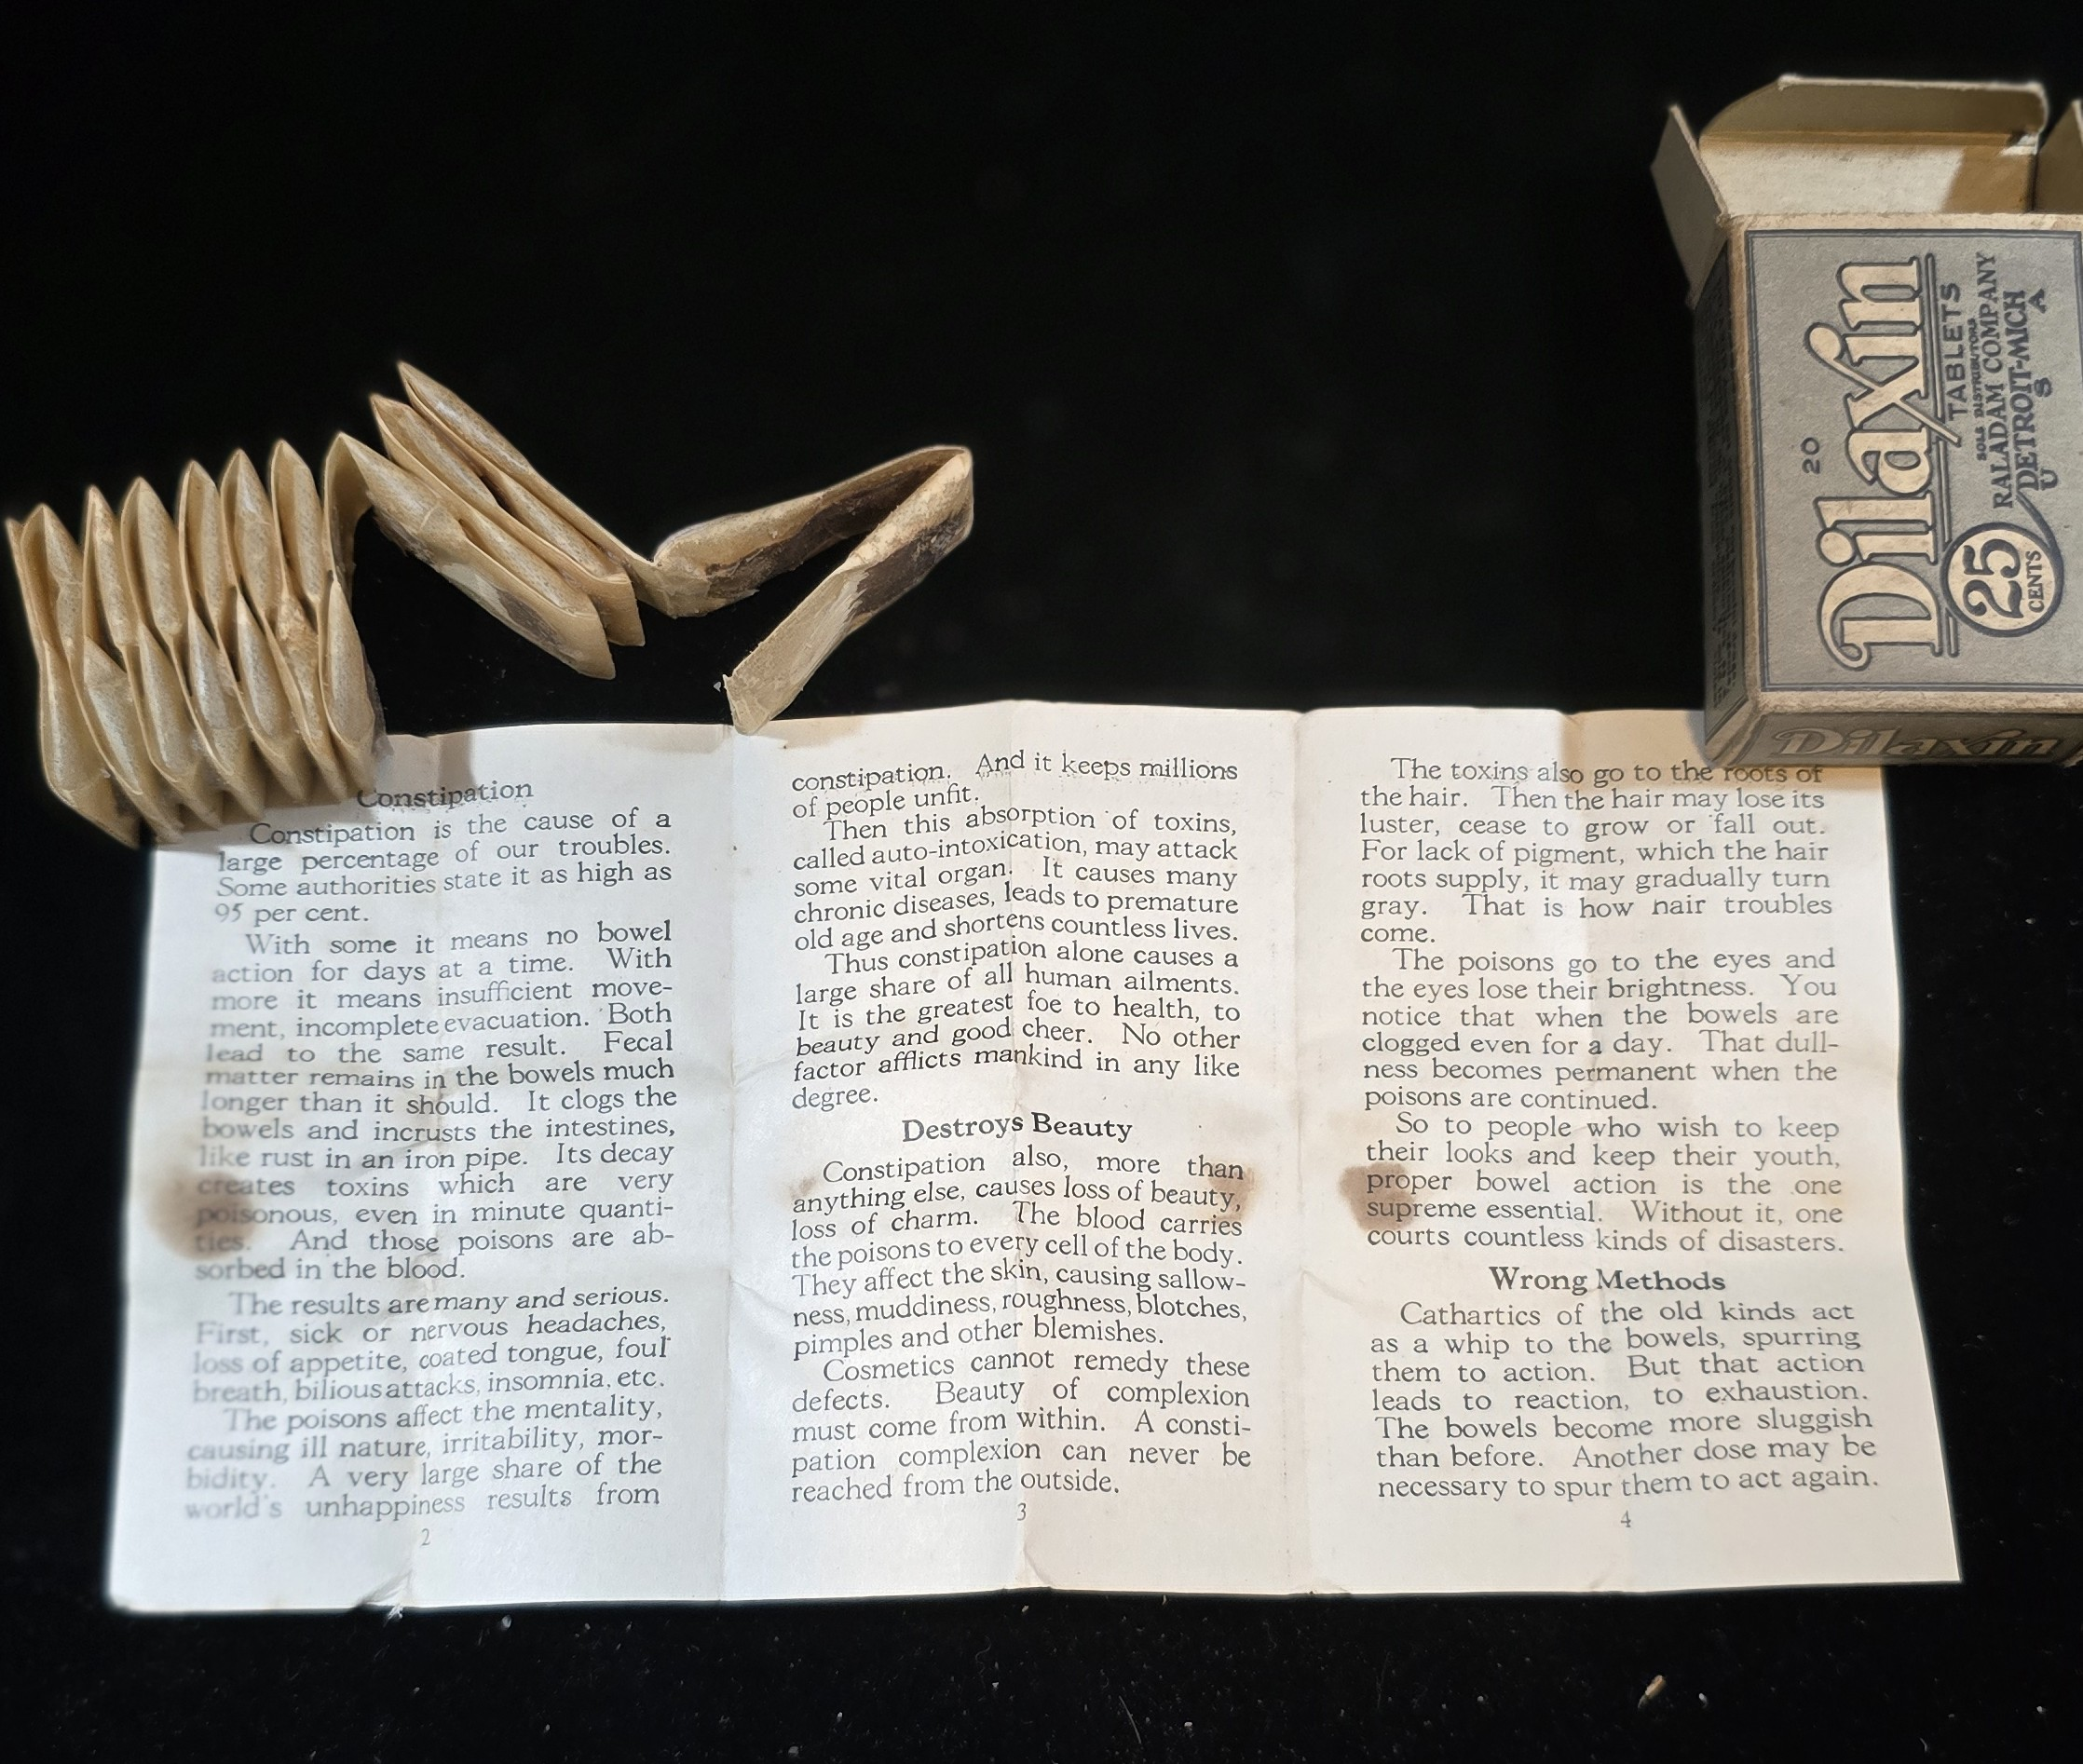 Dilaxin
20
TABLETS
SOLE DISTRIBUTORS
RALADAM COMPANY
DETROIT-MICH
U S A
25
CENTS
Dilaxin
Constipation
Constipation is the cause of a
large percentage of our troubles.
Some authorities state it as high as
95 per cent.
With some it means no bowel
action for days at a time. With
more it means insufficient move-
ment, incomplete evacuation. Both
lead to the same result. Fecal
matter remains in the bowels much
longer than it should. It clogs the
bowels and incrusts the intestines,
like rust in an iron pipe. Its decay
creates toxins which are very
poisonous, even in minute quanti-
ties. And those poisons are ab-
sorbed in the blood.
The results are many and serious.
First, sick or nervous headaches,
loss of appetite, coated tongue, foul
breath, bilious attacks, insomnia, etc.
The poisons affect the mentality,
causing ill nature, irritability, mor-
bidity. A very large share of the
world's unhappiness results from
2
constipation. And it keeps millions
of people unfit.
Then this absorption of toxins,
called auto-intoxication, may attack
some vital organ. It causes many
chronic diseases, leads to premature
old age and shortens countless lives.
Thus constipation alone causes a
large share of all human ailments.
It is the greatest foe to health, to
beauty and good cheer. No other
factor afflicts mankind in any like
degree.
Destroys Beauty
Constipation also, more than
anything else, causes loss of beauty,
loss of charm. The blood carries
the poisons to every cell of the body.
They affect the skin, causing sallow-
ness, muddiness, roughness, blotches,
pimples and other blemishes.
Cosmetics cannot remedy these
defects. Beauty of complexion
must come from within. A consti-
pation complexion can never be
reached from the outside.
3
The toxins also go to the roots of
the hair. Then the hair may lose its
luster, cease to grow or fall out.
For lack of pigment, which the hair
roots supply, it may gradually turn
gray. That is how hair troubles
come.
The poisons go to the eyes and
the eyes lose their brightness. You
notice that when the bowels are
clogged even for a day. That dull-
ness becomes permanent when the
poisons are continued.
So to people who wish to keep
their looks and keep their youth,
proper bowel action is the one
supreme essential. Without it, one
courts countless kinds of disasters.
Wrong Methods
Cathartics of the old kinds act
as a whip to the bowels, spurring
them to action. But that action
leads to reaction, to exhaustion.
The bowels become more sluggish
than before. Another dose may be
necessary to spur them to act again.
4